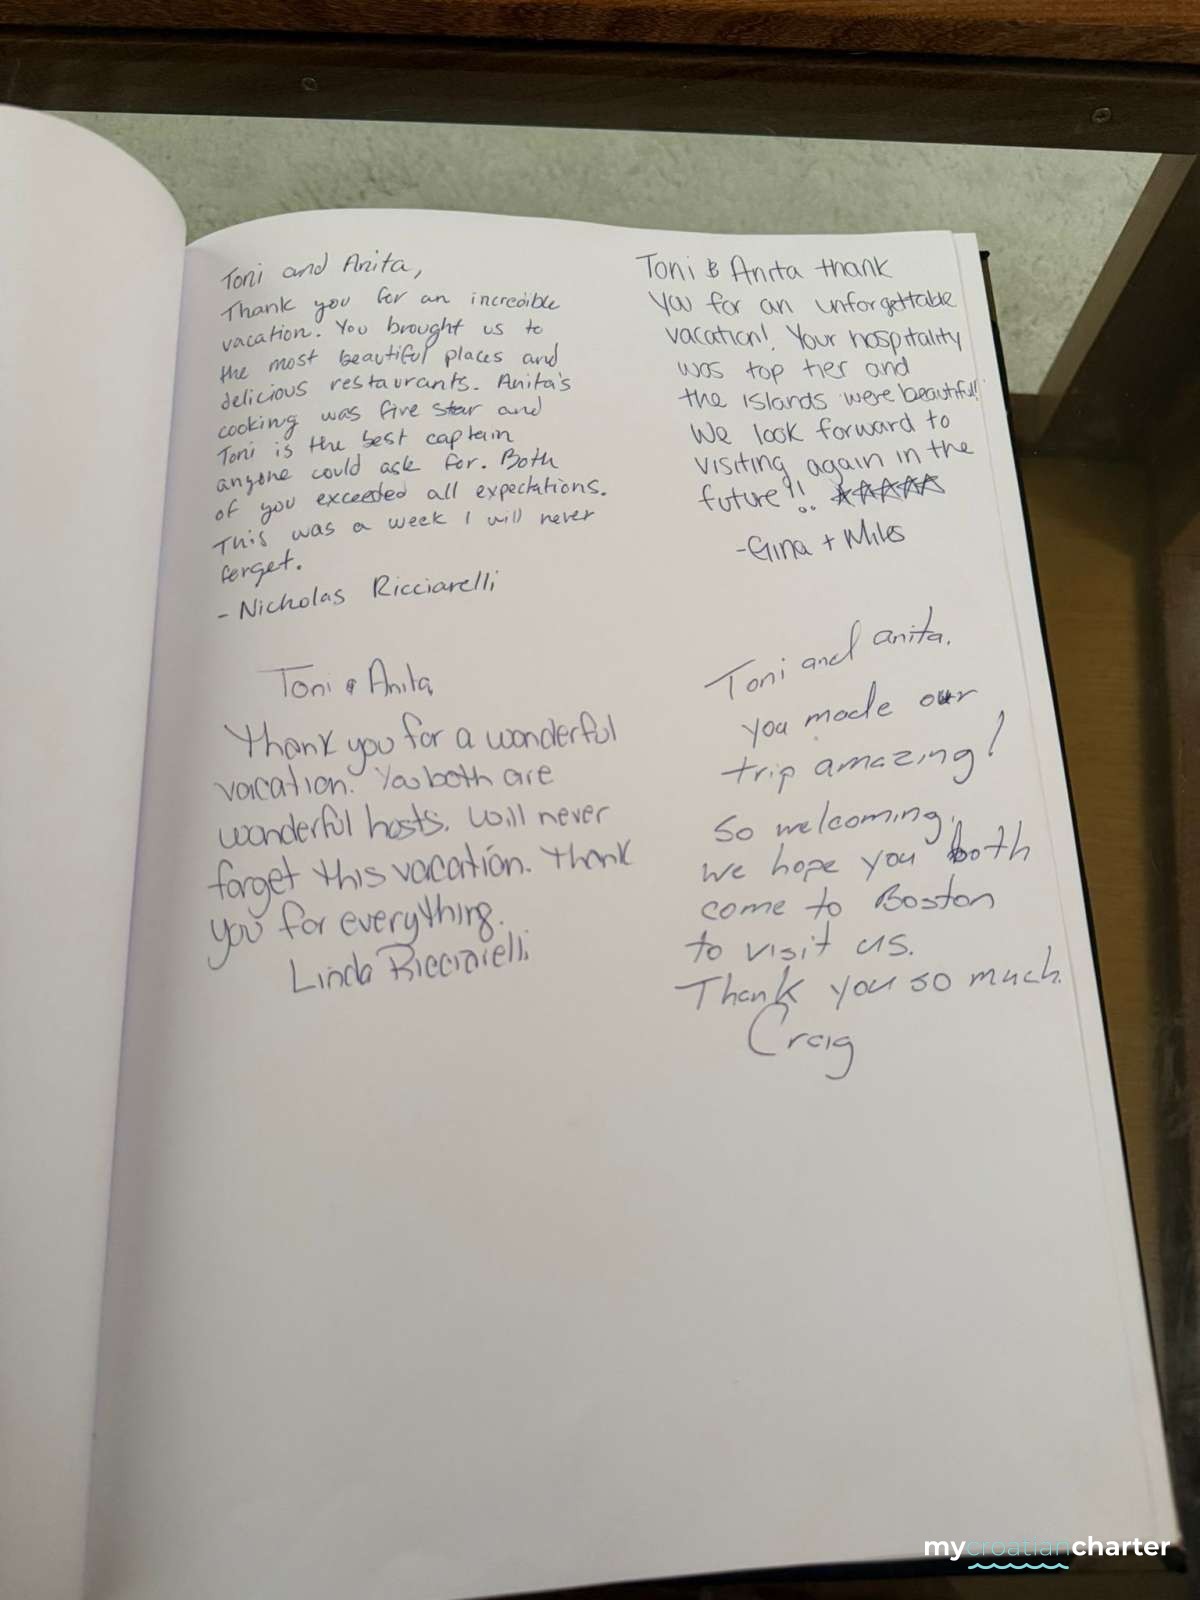 Toni and Anita,
Thank you for an incredible
vacation. You brought us to
the most beautiful places and
delicious restaurants. Anita's
cooking was five star and
Toni is the best captain
anyone could ask for. Both
of you exceeded all expectations.
This was a week I will never
forget.
- Nicholas Ricciarelli
Toni & Anita thank
you for an unforgettable
vacation! Your hospitality
was top tier and
the islands were beautiful!
We look forward to
visiting again in the
future!! ☆☆☆☆☆
-Gina + Miles
Toni & Anita,
Thank you for a wonderful
vacation. You both are
wonderful hosts. Will never
forget this vacation. Thank
you for everything.
Linda Ricciarelli
Toni and anita.
you made our
trip amazing!
So welcoming,
we hope you both
come to Boston
to visit us.
Thank you so much.
Craig
mycroatiancharter